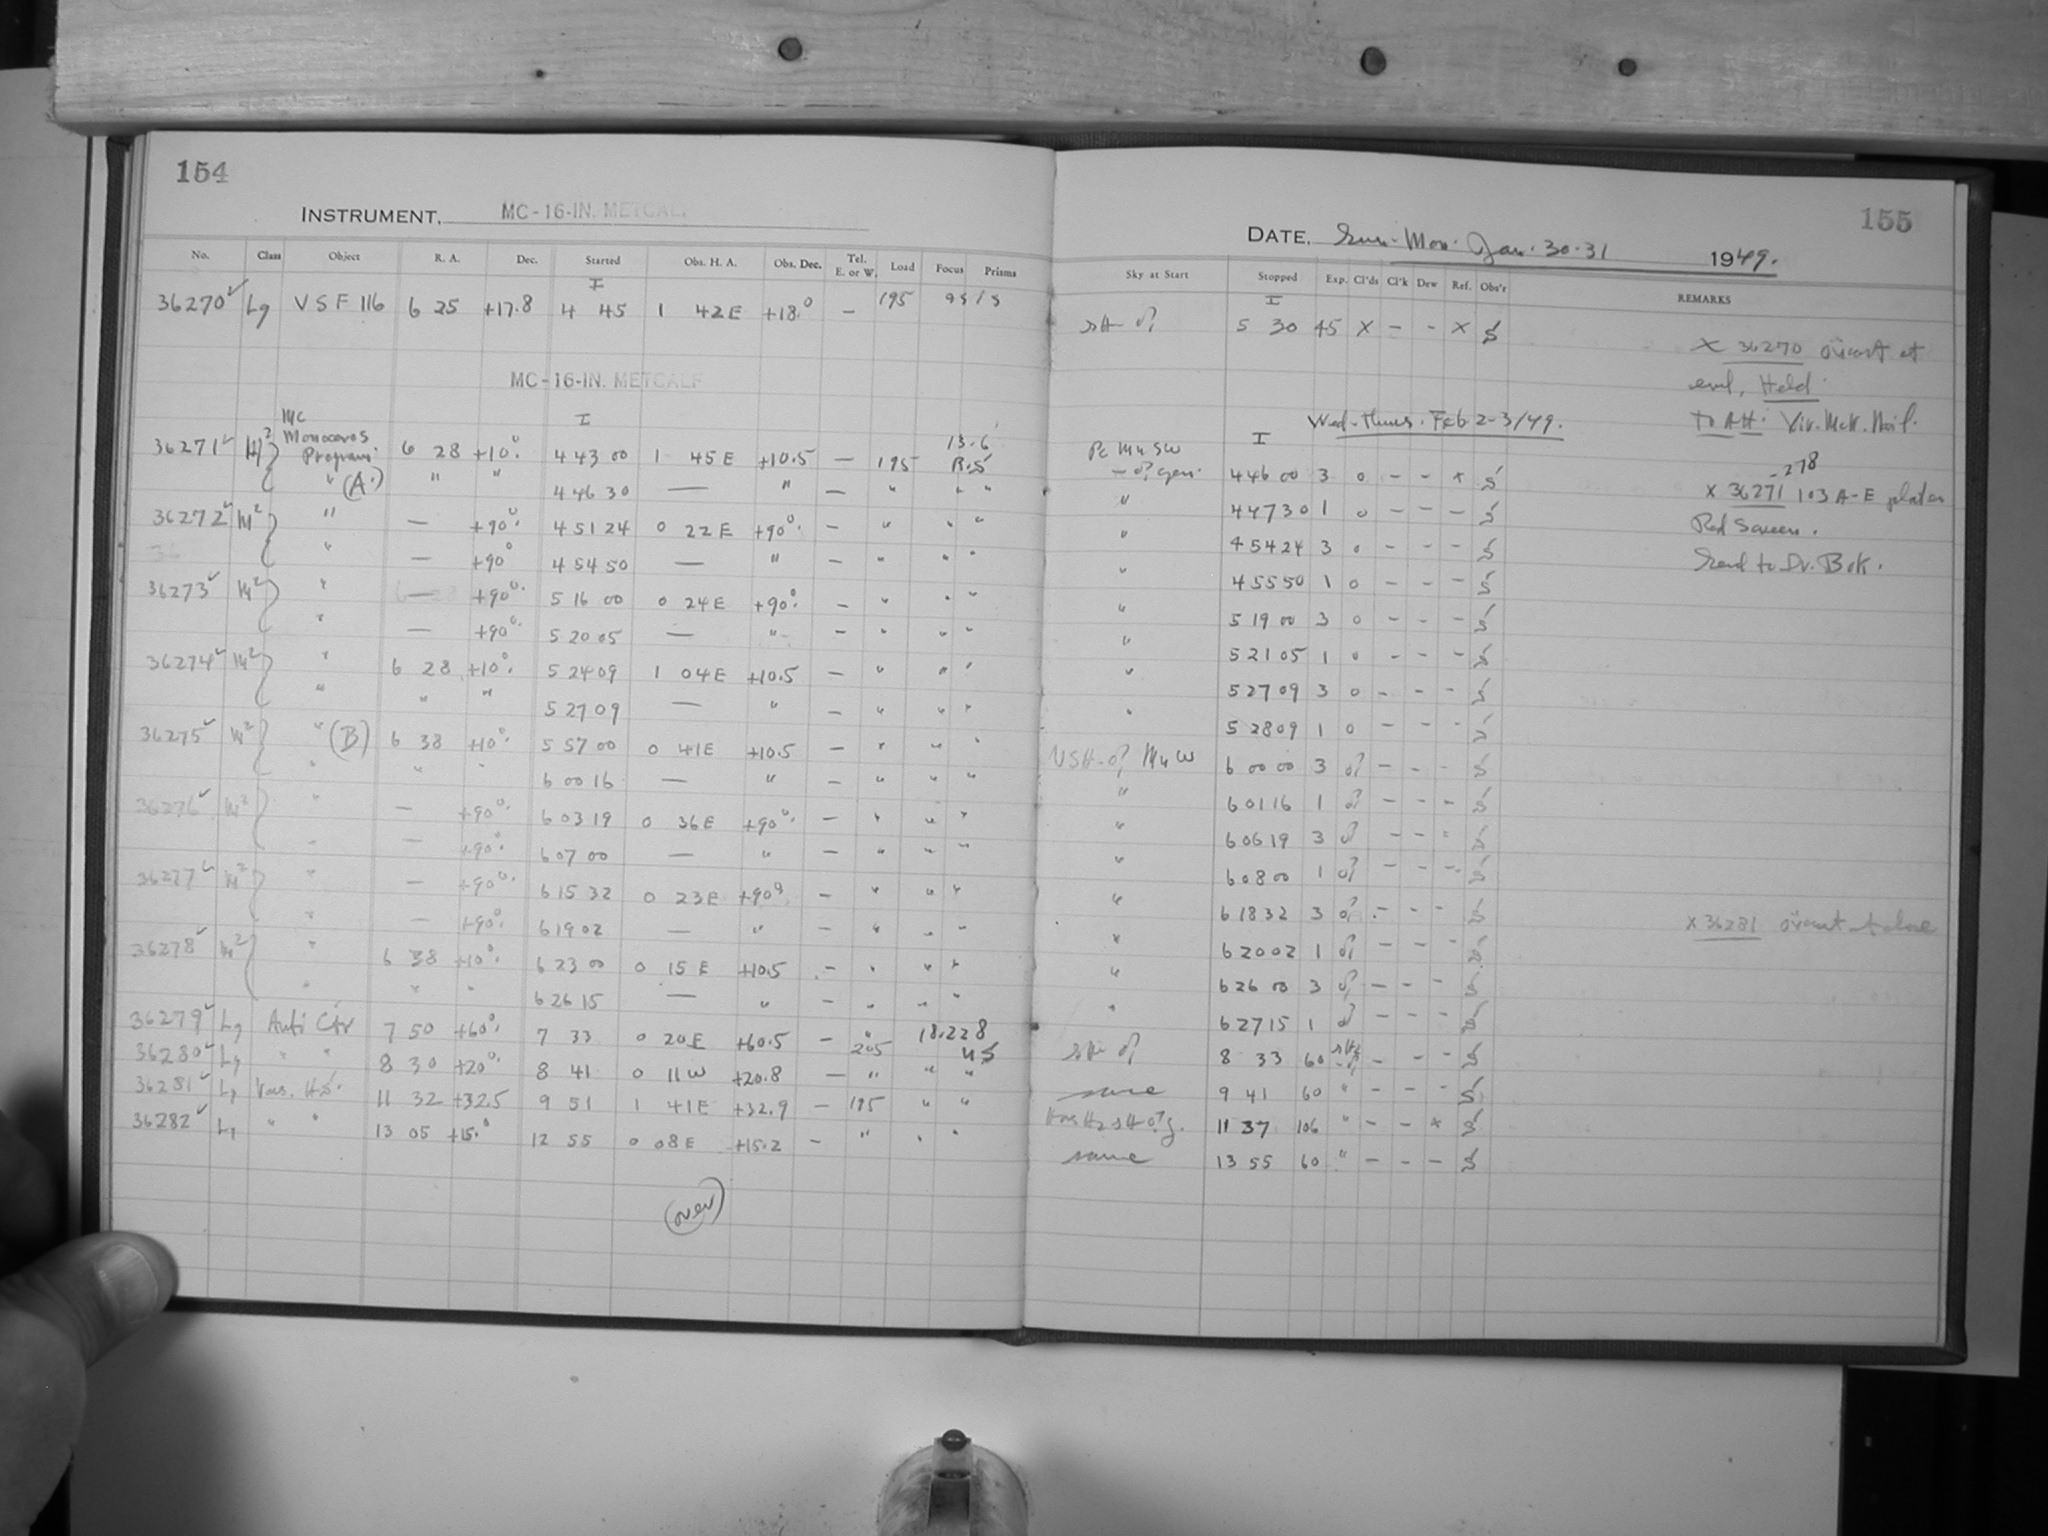 154
INSTRUMENT, MC-16-IN. METCALF
No. Class Object R. A. Dec. Started Obs. H. A. Obs. Dec. Tel. E. or W. Load Focus Prisms
I
36270 ✓ Lg VSF 116 6 25 +17.8 4 45 1 42E +18.0 — 195
MC-16-IN. METCALF
MC I
36271 ✓ M2 Monoceros Program 6 28 +10° 4 43 00 1 45E +10.5 — 195 13.6 R.S
" (A.) " " 4 46 30 — " — " " "
36272 ✓ M2 " — +90° 4 51 24 0 22E +90° — " " "
" — +90° 4 54 50 — " — " " "
36273 ✓ M2 " — +90° 5 16 00 0 24E +90° — " " "
" — +90° 5 20 05 — " — " " "
36274 ✓ M2 " 6 28 +10° 5 24 09 1 04E +10.5 — " " "
" " " 5 27 09 — " — " " "
36275 ✓ M2 " (B) 6 38 +10° 5 57 00 0 41E +10.5 — " " "
" " " 6 00 16 — " — " " "
36276 ✓ M2 " — +90° 6 03 19 0 36E +90° — " " "
" — +90° 6 07 00 — " — " " "
36277 ✓ M2 " — +90° 6 15 32 0 23E +90° — " " "
" — +90° 6 19 02 — " — " " "
36278 ✓ M2 " 6 38 +10° 6 23 00 0 15E +10.5 — " " "
" " " 6 26 15 — " — " " "
36279 ✓ Lg Anti Ctr 7 50 +60° 7 33 0 20E +60.5 — " 18.228
36280 ✓ Lg " " 8 30 +20° 8 41 0 11W +20.8 — 205 " "
36281 ✓ Lg Vars. H.S. 11 32 +32.5 9 51 1 41E +32.9 — 195 " "
36282 ✓ Lg " " 13 05 +15.° 12 55 0 08E +15.2 — " " "
(over)
155
DATE, Sun-Mon. Jan. 30-31 1949.
Sky at Start Stopped Exp. Cl'ds Cl'k Dew Ref. Obs'r REMARKS
I
5 30 45 X — - X S
X 36270 at
end, Held.
Wed-Thurs. Feb 2-3/49.
I
4 46 00 3 0 - - x S
-278
X 36271 103 A-E plates
" 4 47 30 1 0 - - - S
Red Screen.
" 4 54 24 3 0 - - - S
Send to Dr. Bok.
" 4 55 50 1 0 - - - S
" 5 19 00 3 0 - - - S
" 5 21 05 1 0 - - - S
" 5 27 09 3 0 - - - S
" 5 28 09 1 0 - - - S
6 00 00 3 - - - S
" 6 01 16 1 - - - S
" 6 06 19 3 - - - S
" 6 08 00 1 - - - S
" 6 18 32 3 - - - S
X 36281
" 6 20 02 1 - - - S
" 6 26 00 3 - - - S
" 6 27 15 1 - - - S
8 33 60 - - - S
same 9 41 60 " - - - S
11 37 106 " - - x S
same 13 55 60 " - - - S